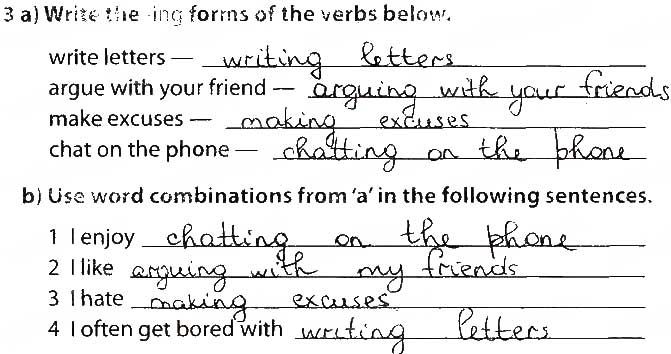 3 a) Write the -ing forms of the verbs below.
write letters — writing letters
argue with your friend — arguing with your friends
make excuses — making excuses
chat on the phone — chatting on the phone
b) Use word combinations from 'a' in the following sentences.
1 I enjoy chatting on the phone
2 I like arguing with my friends
3 I hate making excuses
4 I often get bored with writing letters